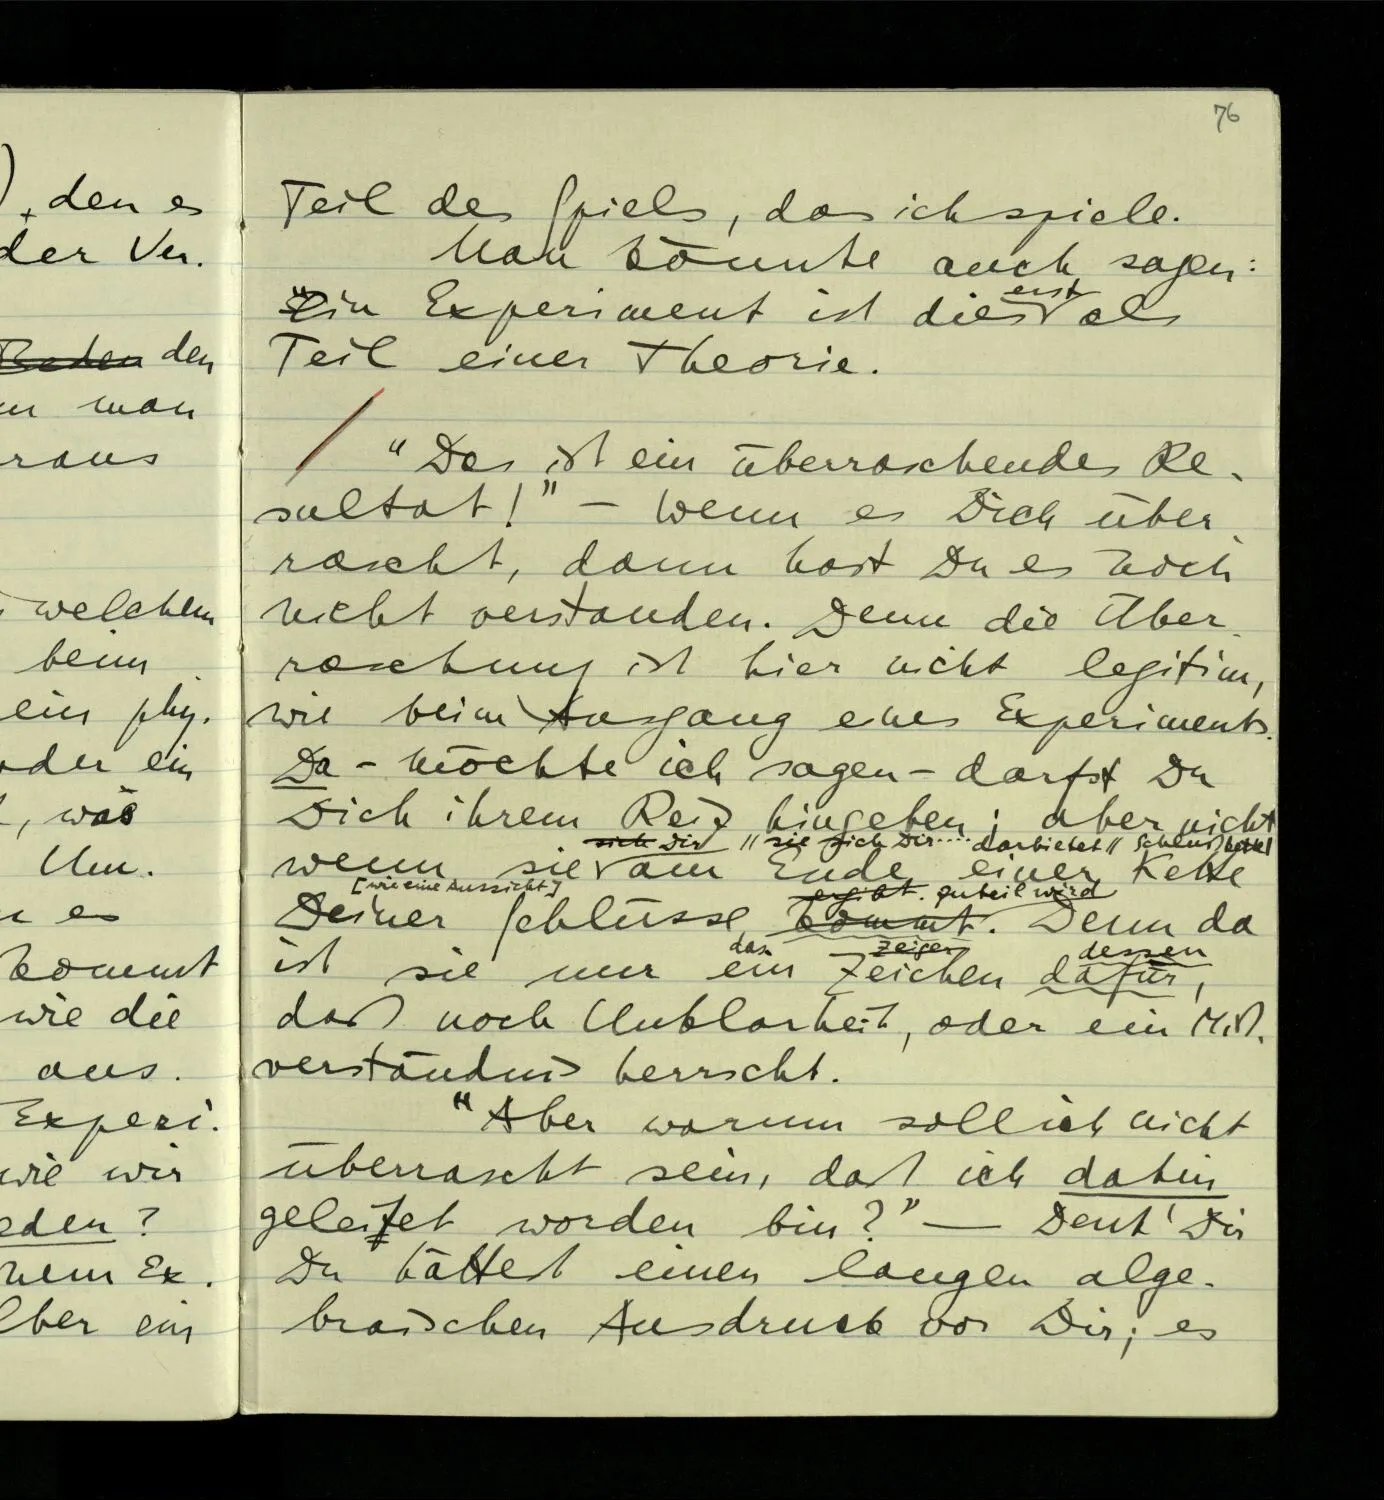 76
, den es
der Ver.
Reden den
man
raus
welchem
beim
ein phy.
oder ein
, was
Um.
es
kommt
wie die
aus.
Experi.
wie wir
eden?
nem Ex.
ber ein
Teil des Spiels, das ich spiele.
Man könnte auch sagen:
erst
Ein Experiment ist dies als
Teil einer Theorie.
"Das ist ein überraschendes Re-
sultat!" – Wenn es Dich über-
rascht, dann hast Du es noch
nicht verstanden. Denn die Über-
raschung ist hier nicht legitim,
wie beim Ausgang eines Experiments.
Da – möchte ich sagen – darfst Du
Dich ihrem Reiz hingeben; aber nicht
sich Dir // sie sich Dir .... darbietet //
wenn sie am Ende einer Kette
[wie eine Aussicht] ergibt. zuteil wird
Deiner Schlüsse kommt. Denn da
das zeigen dessen
ist sie nur ein Zeichen dafür,
daß noch Unklarheit, oder ein Miß-
verständnis herrscht.
"Aber warum soll ich nicht
überrascht sein, daß ich dahin
geleitet worden bin?" — Denk' Dir
Du hättest einen langen alge-
braischen Ausdruck vor Dir; es